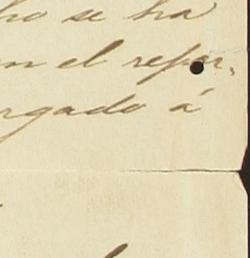 ho se ha
en el repor-
rgado á